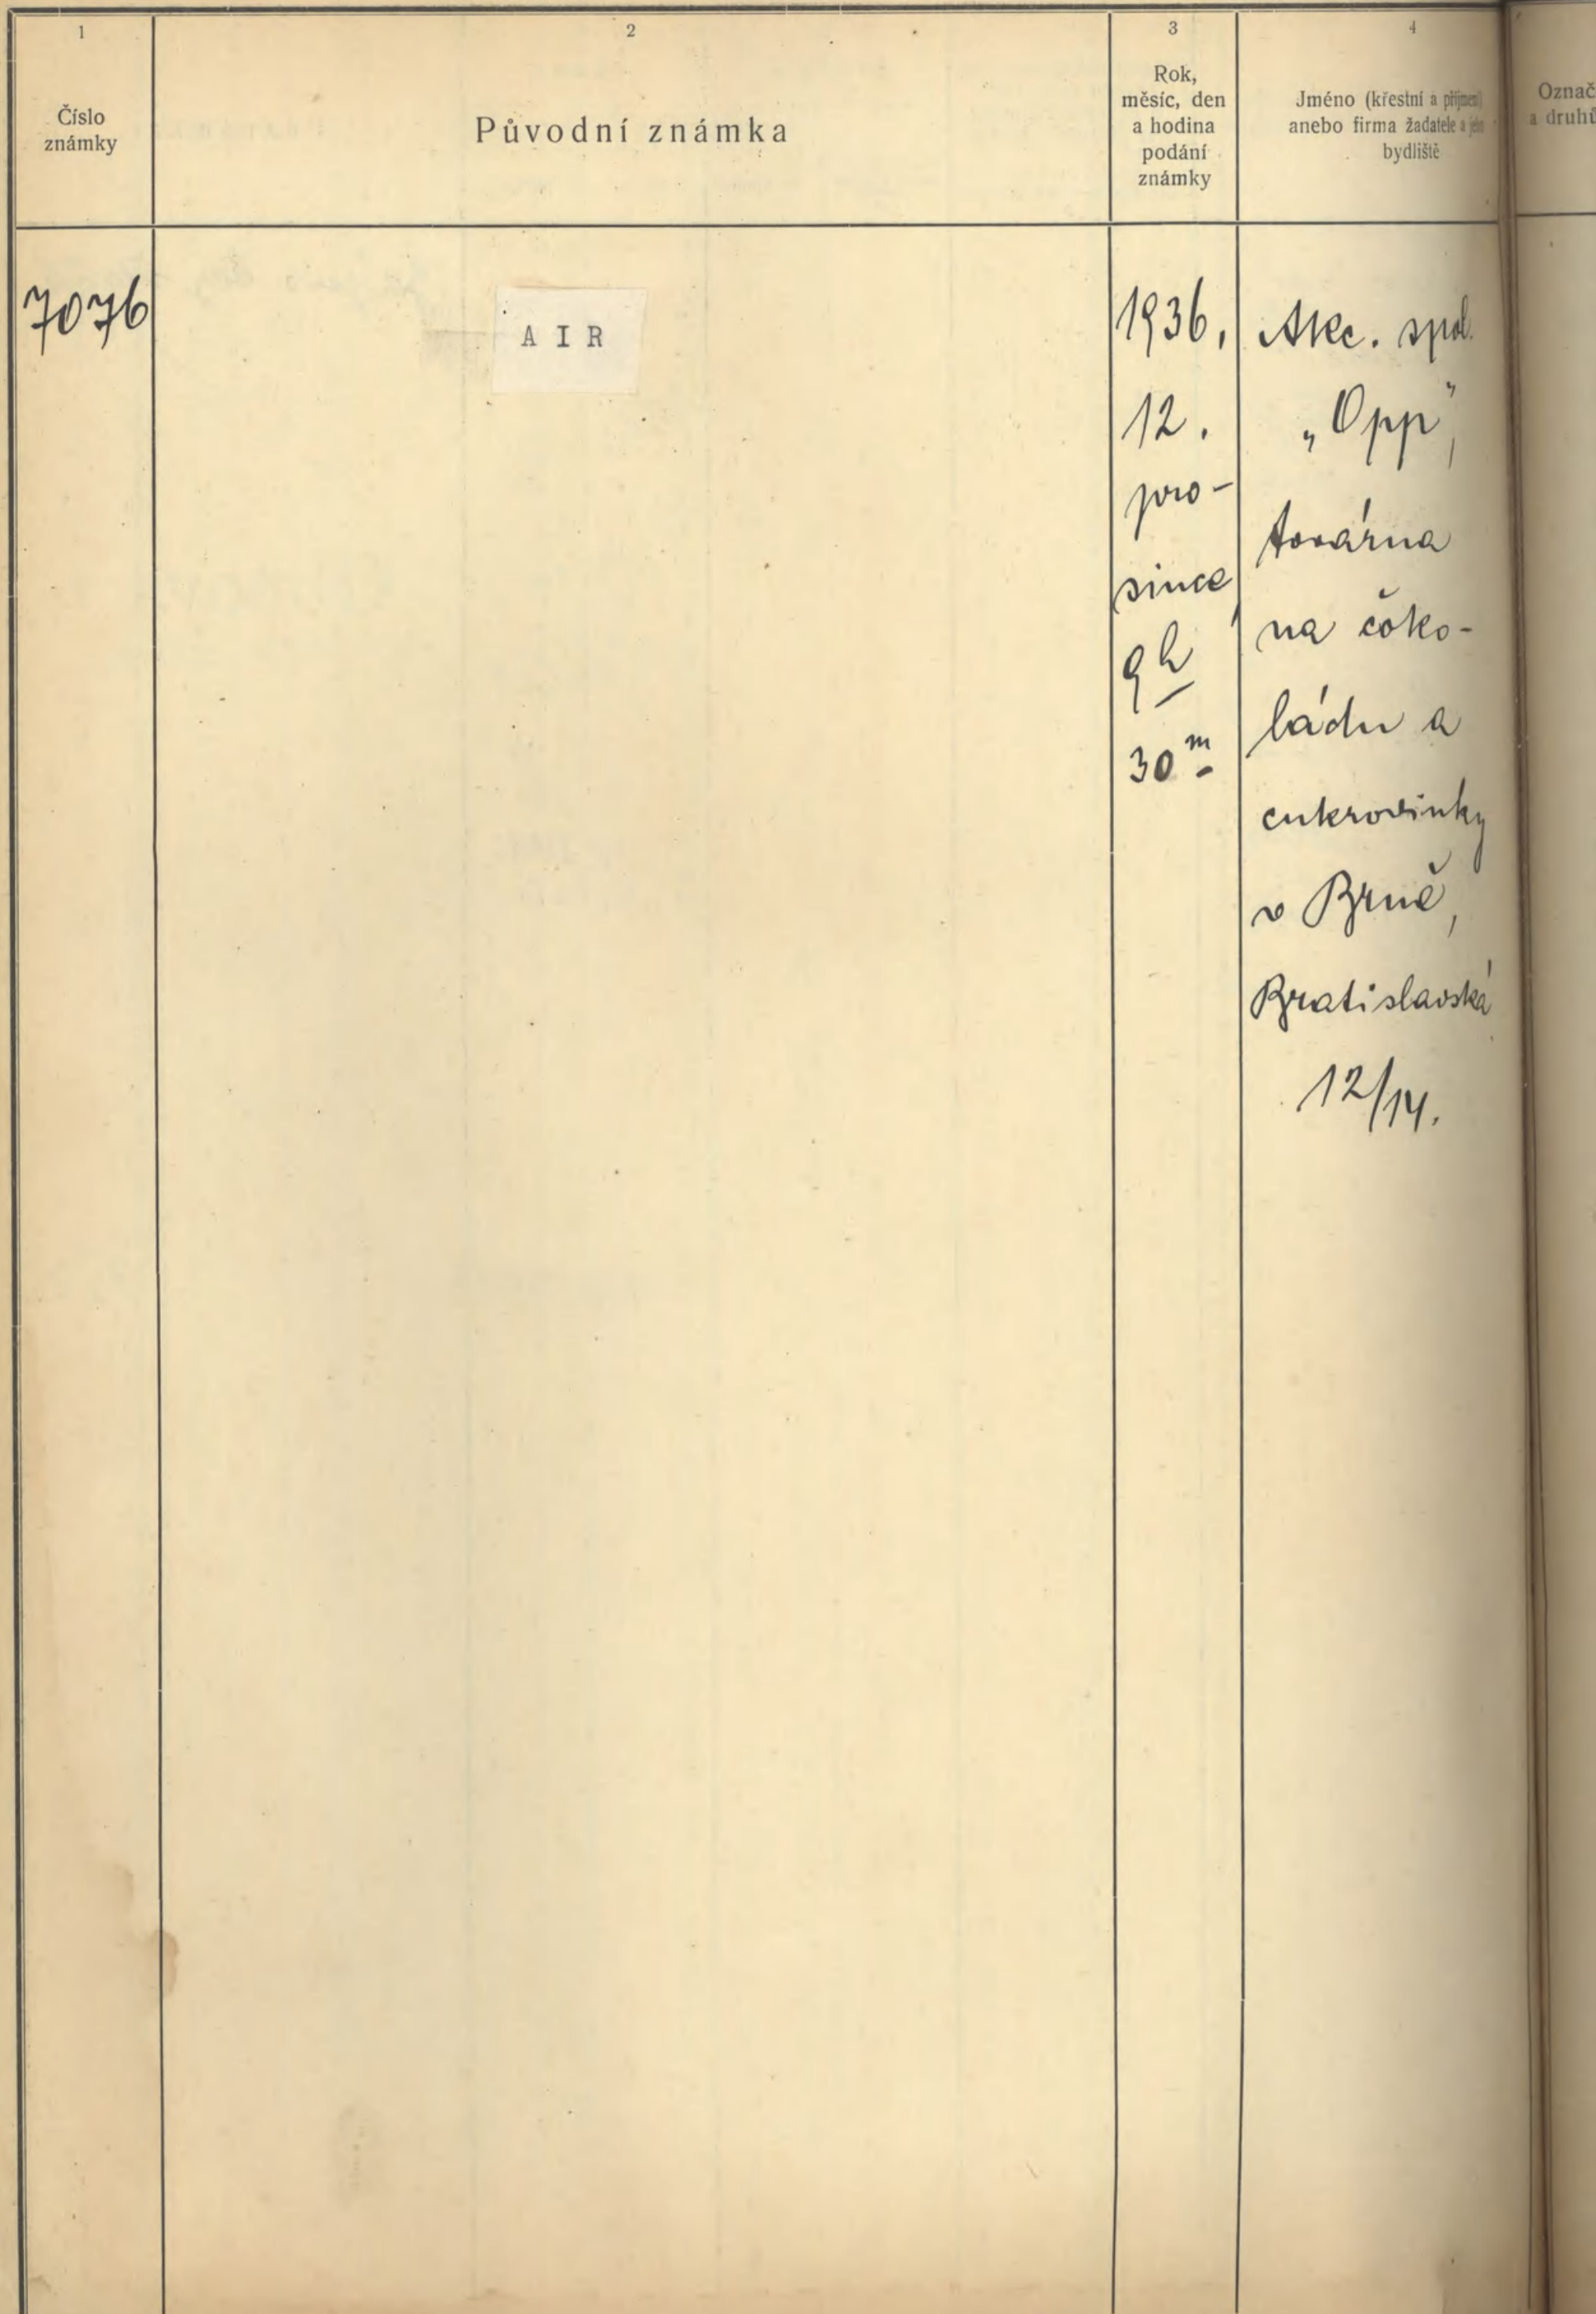 1
Číslo
známky
2
Původní známka
3
Rok,
měsíc, den
a hodina
podání
známky
4
Jméno (křestní a příjmení)
anebo firma žadatele a jeho
bydliště
Označ
a druhů
7076
AIR
1936,
12.
pro-
since,
9h
30m
Akc. spol.
„Opp",
továrna
na čoko-
ládu a
cukrovinky
v Brně,
Bratislavská
12/14.